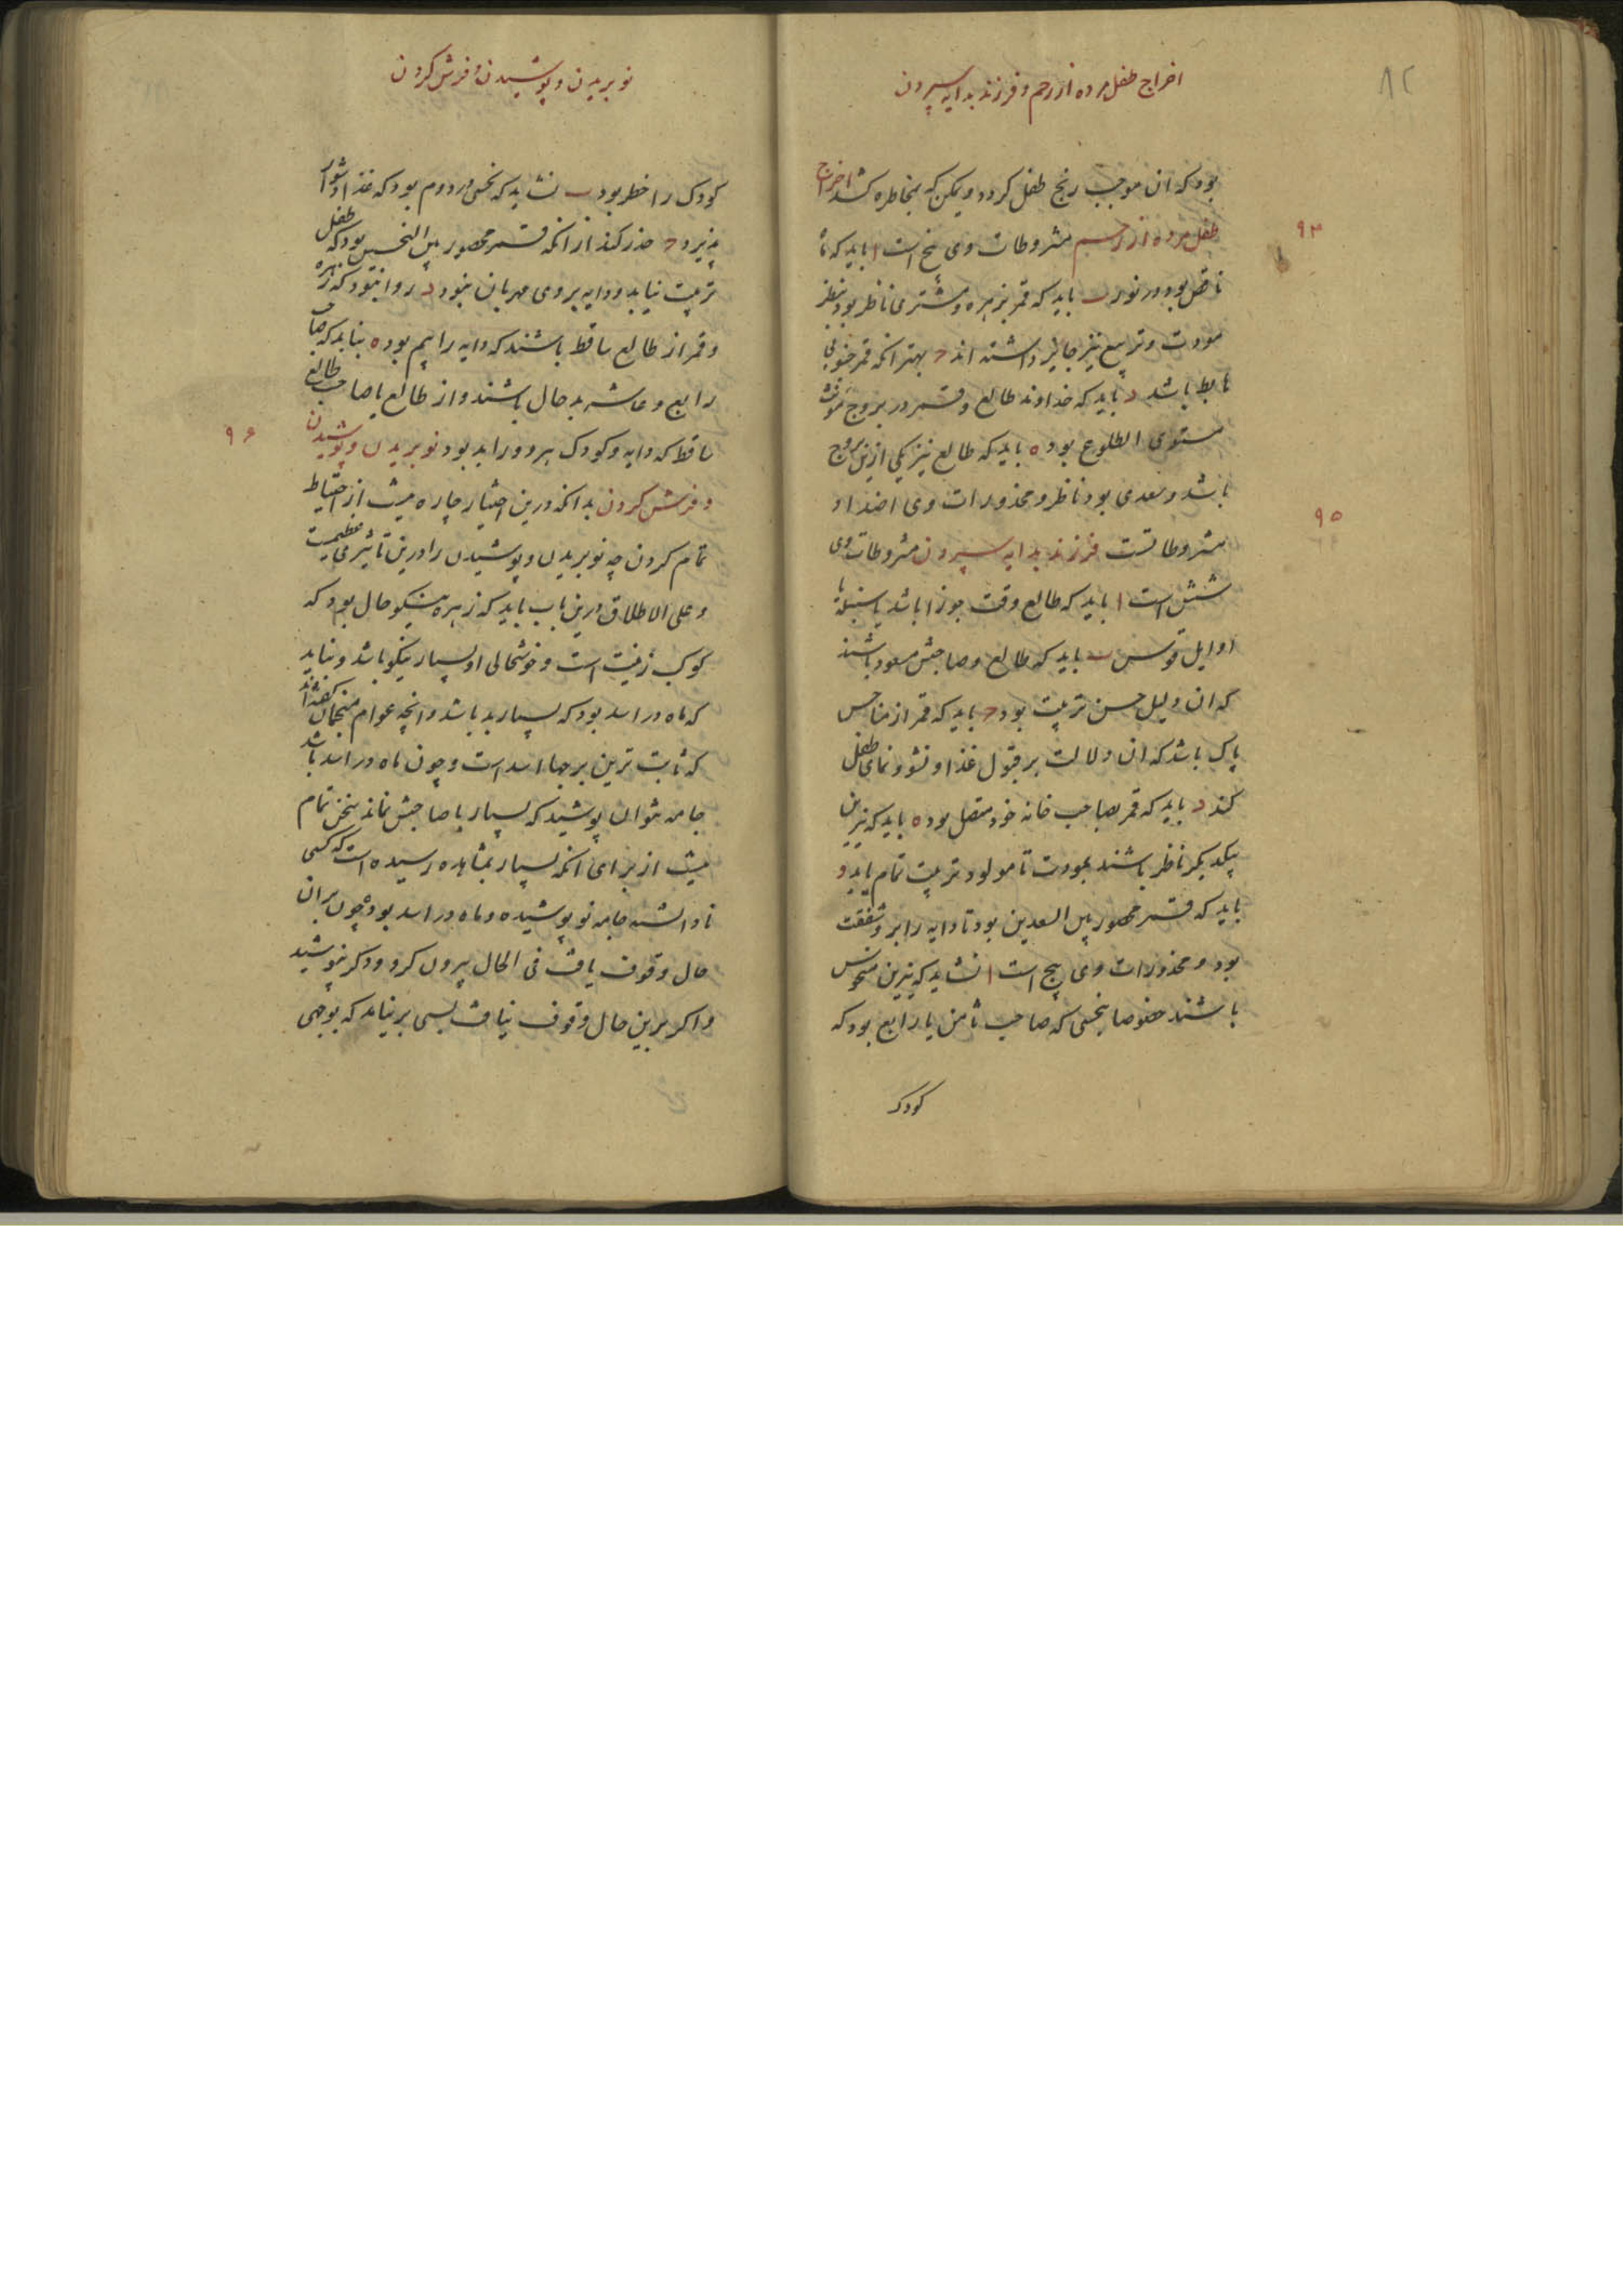 ۸۲
اخراج طفل مرده از رحم و فرزند بدایه سپردن
بود که ان موجب رنج طفل کردد و یمکن که بمخاطره کشد اخراج
۹۴
طفل مرده از رحم مشروطات وی پنج است ا باید که ماه
ناقص بود در نور ب باید که قمر بزهره و مشتری ناظر بود بنظر
مودت و تربیع نیز جایز داشته اند ج بهتر انکه قمر جنوبی
هابط باشد د باید که خداوند طالع و قمر در بروج مونث
مستوی الطلوع بود ه باید که طالع نیز یکی ازین بروج
باشد و سعدی بود ناظر و محذورات وی اضداد
۹۵
مشروطاتست فرزند بدایه سپردن مشروطات وی
شش است ا باید که طالع وقت جوزا باشد یا سنبله یا
اوایل قوس ب باید که طالع و صاحبش مسعود باشند
که ان دلیل حسن تربیت بود ج باید که قمر از مناحس
پاک باشد که ان دلالت بر قبول غذا و نشو و نمای طفل
کند د باید که قمر بصاحب خانه خود متصل بود ه باید که نیرین
بیکدیکر ناظر باشند بمودت تا مولود تربیت تمام یابد و
باید که قمر محصور بین السعدین بود تا دایه را بر و شفقت
بود و محذورات وی پنج است ا نشاید که نیرین منحوس
باشند خصوصا بنحسی که صاحب ثامن یا رابع بود که
کودک
نو بریدن و پوشیدن و فرش کردن
کودک را خطر بود ب نشاید که نحسی در دوم بود که غذا دشوار
پذیرد ج حذر کنند از انکه قمر محصور بین النحسین بود که طفل
تربیت نیابد و دایه بر وی مهربان نبود د روا نبود که زهره
و قمر از طالع ساقط باشند که دایه را بیم بود ه نباید که صاحب
رابع و عاشر بدحال باشند و از طالع یا صاحب طالع
۹۶
ساقط که دایه و کودک هر دو را بد بود نو بریدن و پوشیدن
و فرش کردن بدانکه درین اختیار چاره نیست از احتیاط
تمام کردن چه نو بریدن و پوشیدن را درین تاثیری عظیمست
و علی الاطلاق درین باب باید که زهره نیکو حال بود که
کوکب زینت است و خوشحالی او بسیار نیکو باشد و نباید
که ماه در اسد بود که بسیار بد باشد و انچه عوام منجمان گفته اند
که ثابت ترین برجها اسد است و چون ماه در اسد باشد
جامه نتوان پوشید که بسیار با صاحبش نماند سخن تمام
نیست از برای انکه بسیار بمشاهده رسیده است که کسی
نادانسته جامه نو پوشیده و ماه در اسد بود و چون بران
حال وقوف یافت فی الحال بیرون کرد و دکر نپوشید
و اکر برین حال وقوف نیافت بسی بر نیامد که بوجهی